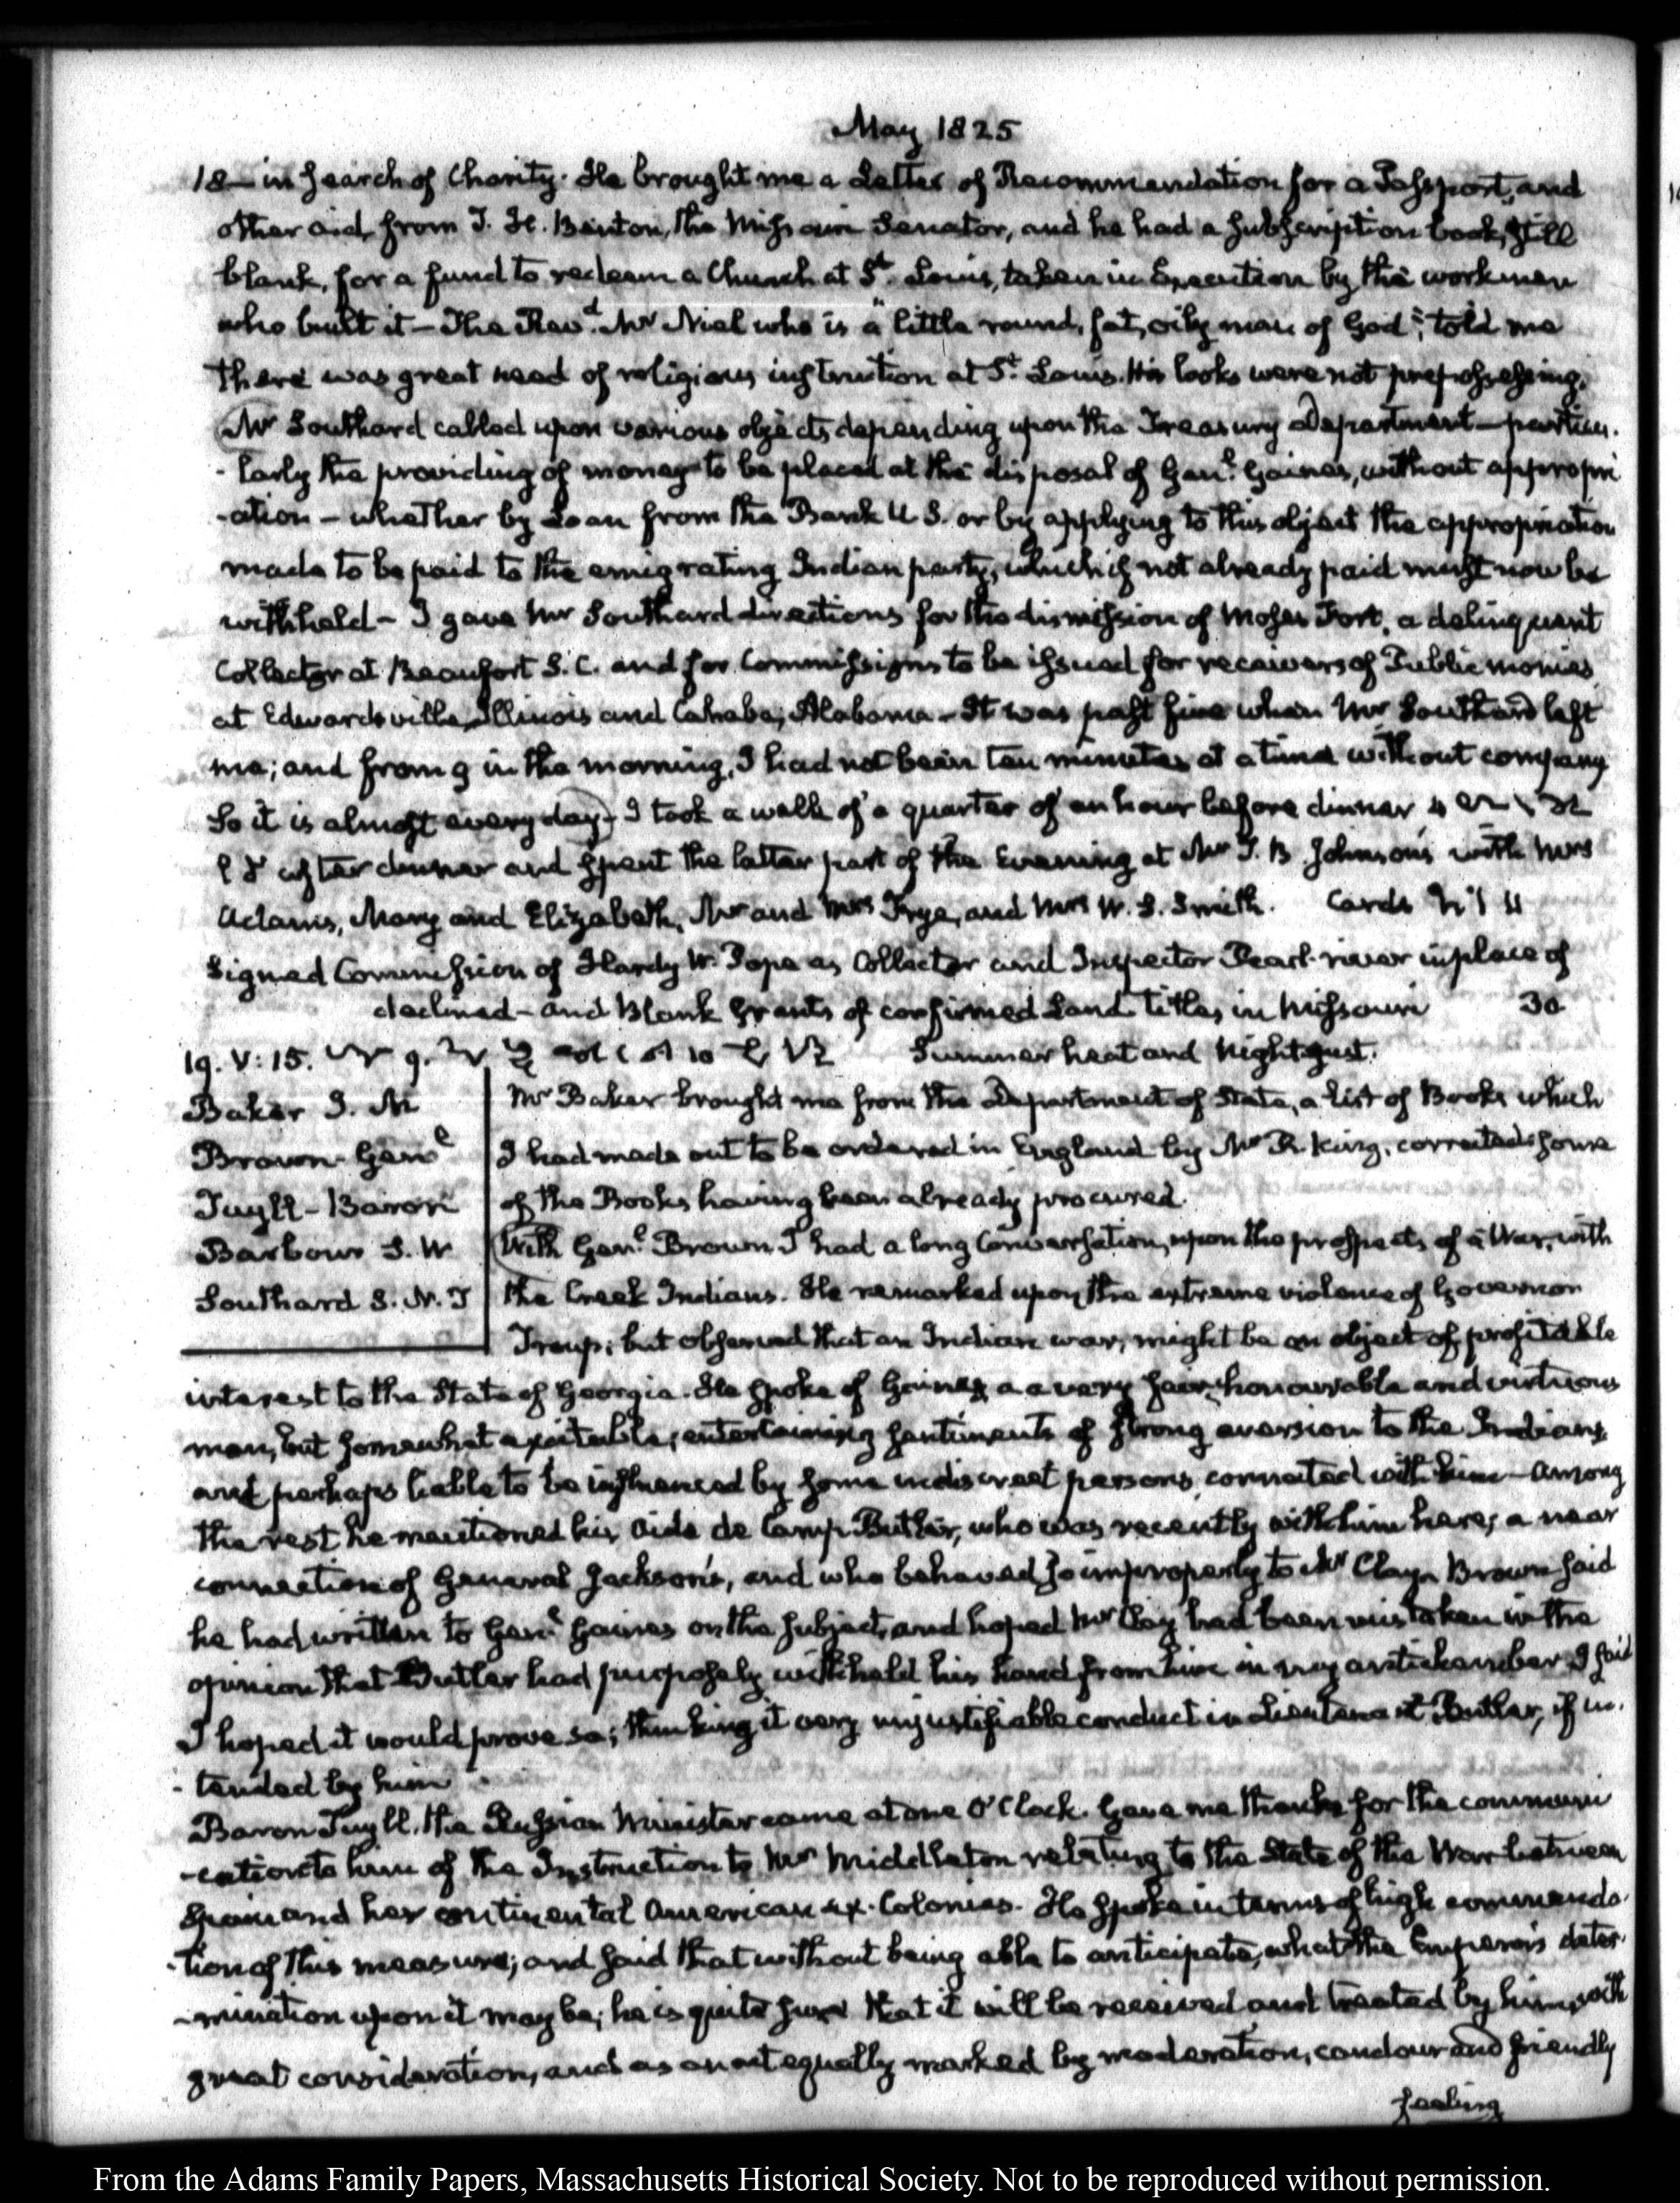 May 1825
18— in search of Charity. He brought me a Letter of Recommendation for a Passport, and
other aid, from T. H. Benton, the Missouri Senator, and he had a subscription book, still
blank, for a fund to redeem a Church at St. Louis, taken in Execution by the workmen
who built it— The Revd. Mr Niel who is a "little round, fat, oily man of God", told me
there was great need of religious instruction at St. Louis. His looks were not prepossessing.
Mr Southard called upon various objects depending upon the Treasury Department— particu-
-larly the providing of money to be placed at the disposal of Genl. Gaines, without appropri
-ation— whether by Loan from the Bank U.S. or by applying to this object the appropriation
made to be paid to the emigrating Indian party, which if not already paid must now be
withheld— I gave Mr Southard directions for the dismission of Moses Fort, a delinquent
Collector at Beaufort S.C. and for Commissions to be issued for receivers of Public monies
at Edwardsville, Illinois and Cahaba, Alabama— It was past five when Mr Southard left
me; and from 9 in the morning, I had not been ten minutes at a time without company
So it is almost every day— I took a walk of a quarter of an hour before dinner
after dinner and spent the latter part of the Evening at Mr T. B. Johnson's with Mrs
Adams, Mary and Elizabeth, Mr and Mrs Frye, and Mrs W. S. Smith. Cards
Signed Commission of Hardy W. Pope as Collector and Inspector Pearl-river in place of
declined— and Blank Grants of confirmed Land titles in Missouri 30
19. V: 15. Summer heat and Night gust.
Baker J. M
Brown Genl
Tuyll— Baron
Barbour S. W
Southard S. N. T
Mr Baker brought me from the Department of State, a list of Books which
I had made out to be ordered in England by Mr R. King, corrected some
of the Books having been already procured.
With Genl. Brown I had a long Conversation, upon the prospects of a War, with
the Creek Indians. He remarked upon the extreme violence of Governor
Troup; but observed that an Indian war, might be an object of profitable
interest to the State of Georgia. He spoke of Gaines as a very fair, honourable and virtuous
man, but somewhat excitable; entertaining sentiments of strong aversion to the Indians,
and perhaps liable to be influenced by some indiscreet persons, connected with him— Among
the rest he mentioned his Aide de Camp Butler, who was recently with him here; a near
connection of General Jackson's, and who behaved so improperly to Mr Clay. Brown said
he had written to Genl. Gaines on the subject, and hoped Mr Clay had been mistaken in the
opinion that Butler had purposely withheld his hand from him in my antichamber. I said
I hoped it would prove so; thinking it very unjustifiable conduct in Lieutenant Butler, if in-
-tended by him
Baron Tuyll, the Russian Minister came at one O'Clock. Gave me thanks for the communi
-cation to him of the Instruction to Mr Middleton relating to the State of the War between
Spain and her continental American ex-Colonies. He spoke in terms of high commenda-
-tion of this measure; and said that without being able to anticipate, what the Emperor's deter-
-mination upon it may be; he is quite sure that it will be received and treated by him, with
great consideration, and as an act equally marked by moderation, candour and friendly
feeling
From the Adams Family Papers, Massachusetts Historical Society. Not to be reproduced without permission.